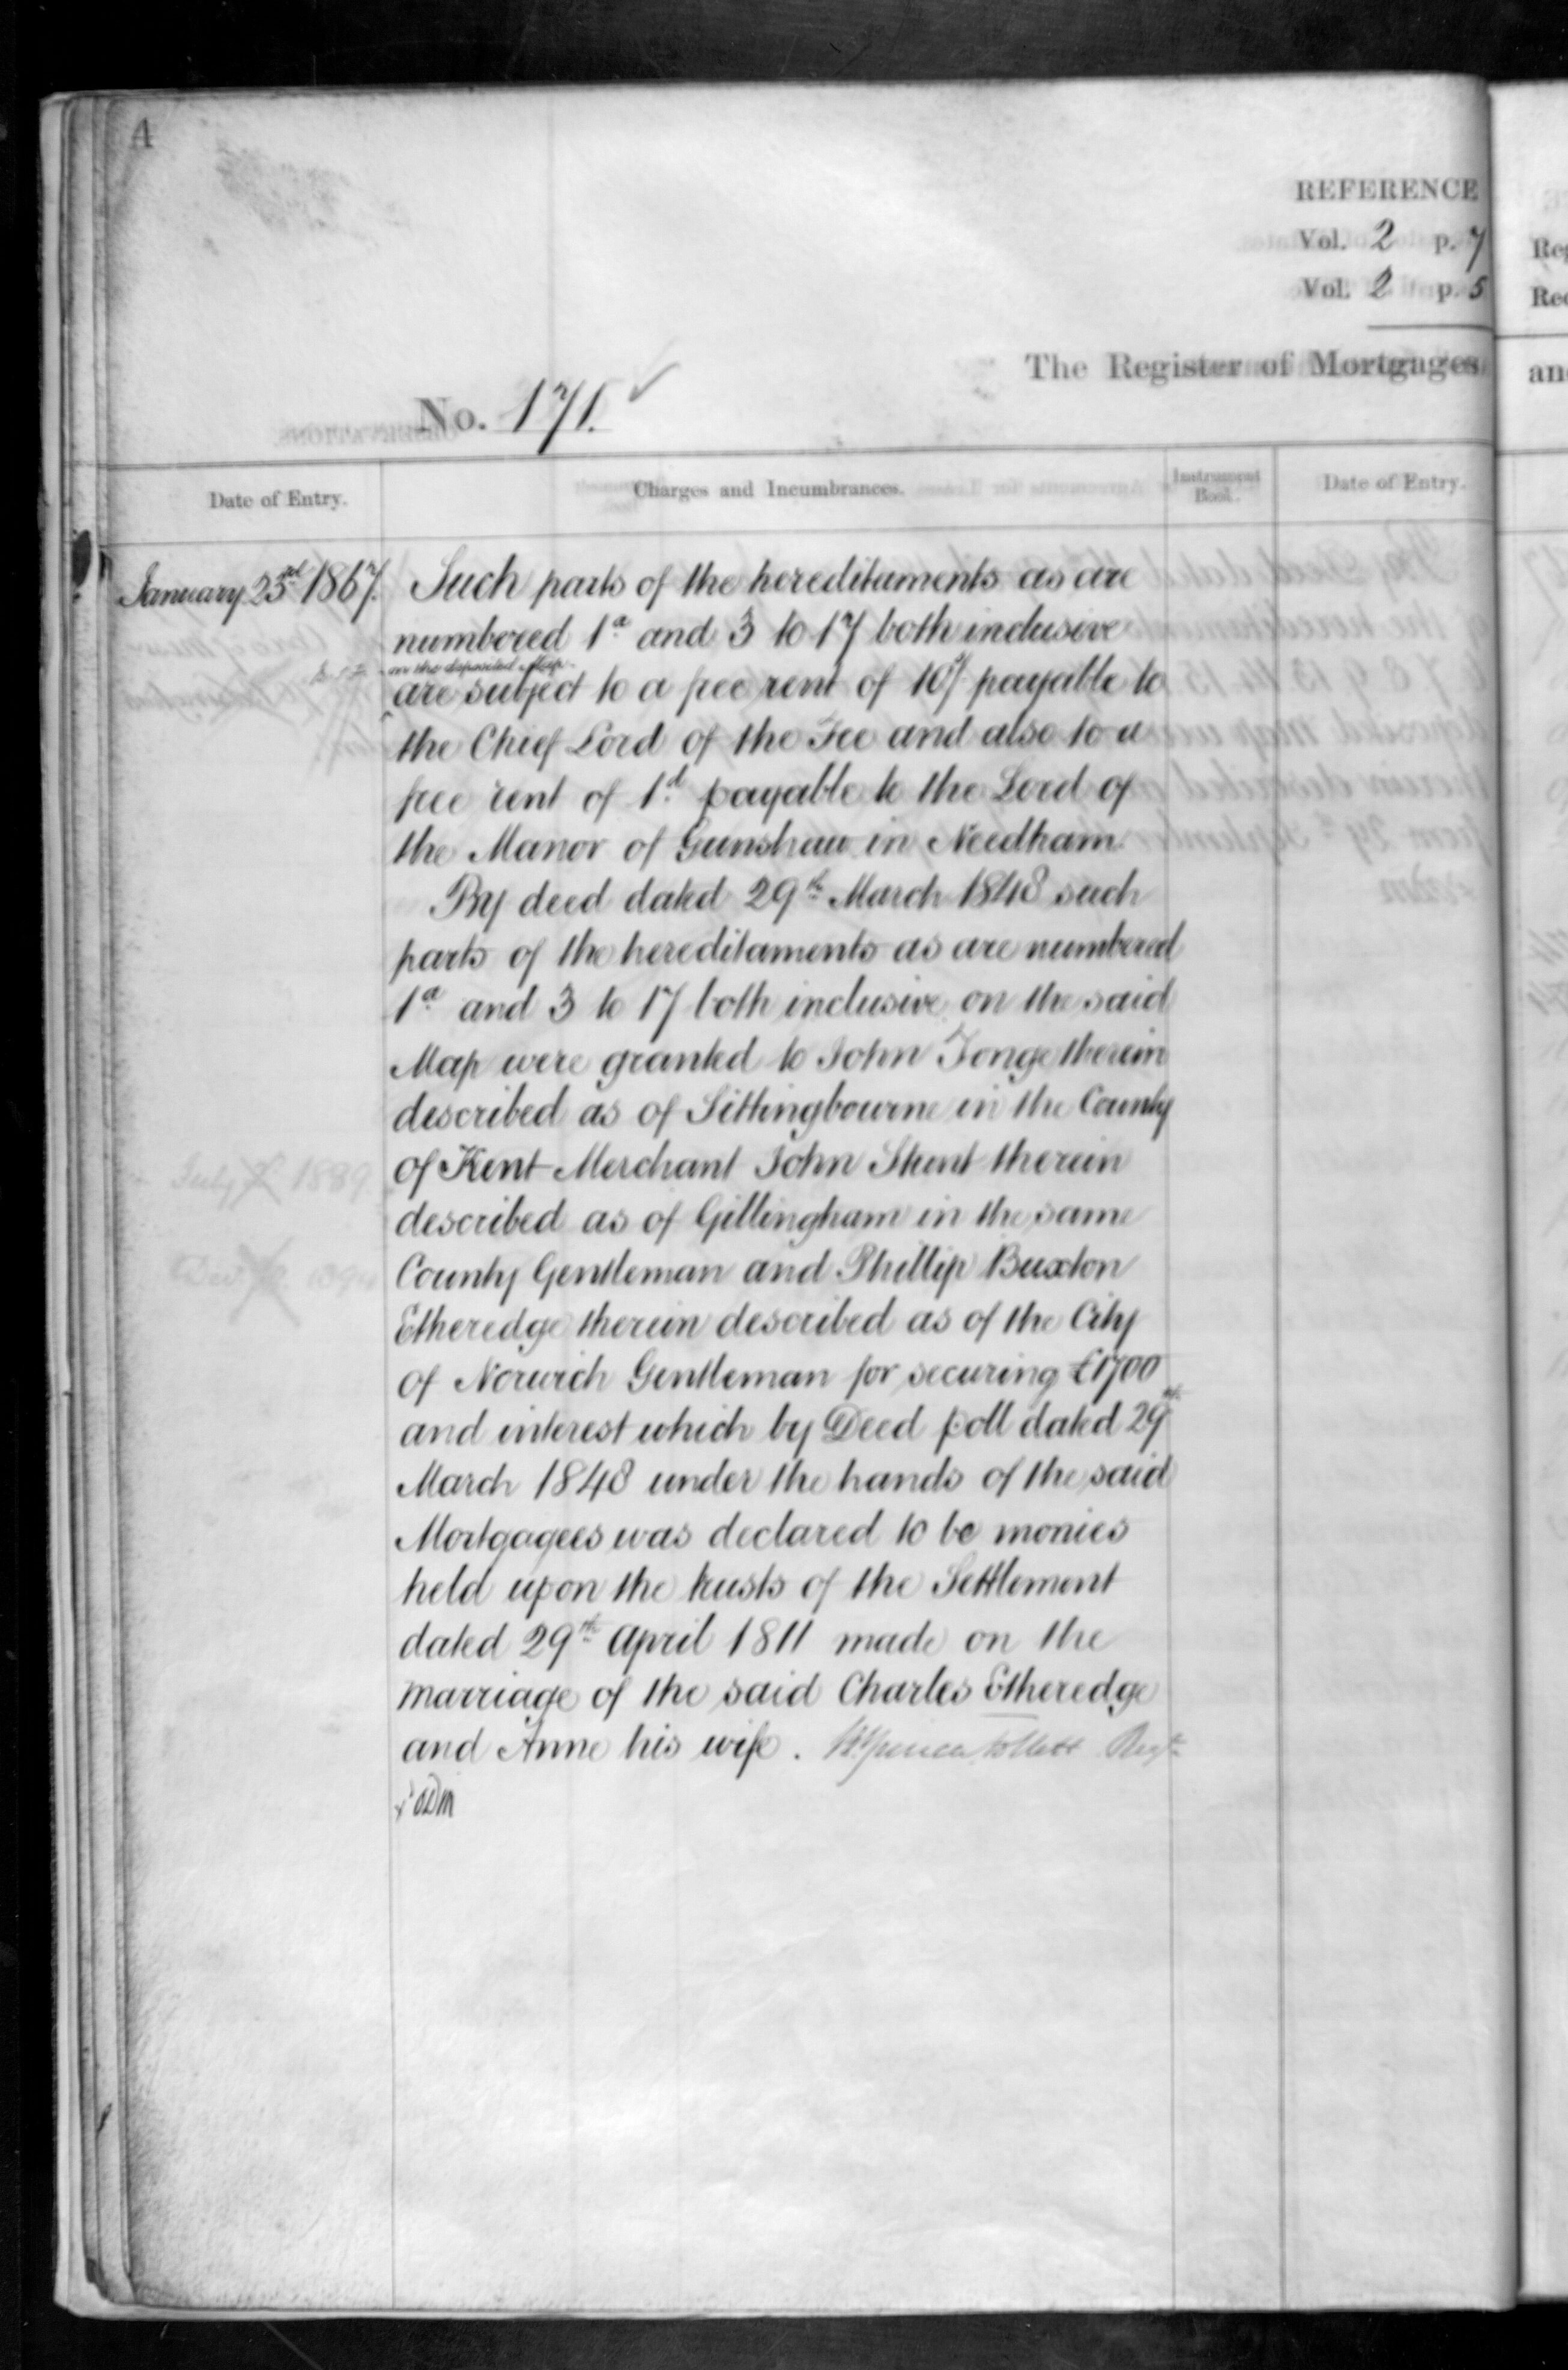 4
REFERENCE
Vol. 2 p. 7
Vol. 2 p. 5
The Register of Mortgages
No. 171.
Date of Entry.
Charges and Incumbrances.
Instrument Book.
Date of Entry.
January 23rd 1867.
Such parts of the hereditaments as are
numbered 1a and 3 to 17 both inclusive
on the deposited Map
are subject to a free rent of 10/ payable to
the Chief Lord of the Fee and also to a
free rent of 1d payable to the Lord of
the Manor of Gunshaw in Needham
By deed dated 29th March 1848 such
parts of the hereditaments as are numbered
1a and 3 to 17 both inclusive on the said
Map were granted to John Tonge therein
described as of Sittingbourne in the County
of Kent Merchant John Stunt therein
described as of Gillingham in the same
County Gentleman and Phillip Buxton
Etheredge therein described as of the City
of Norwich Gentleman for securing £1700
and interest which by Deed poll dated 29th
March 1848 under the hands of the said
Mortgagees was declared to be monies
held upon the trusts of the Settlement
dated 29th April 1811 made on the
marriage of the said Charles Etheredge
and Anne his wife.
July 1889